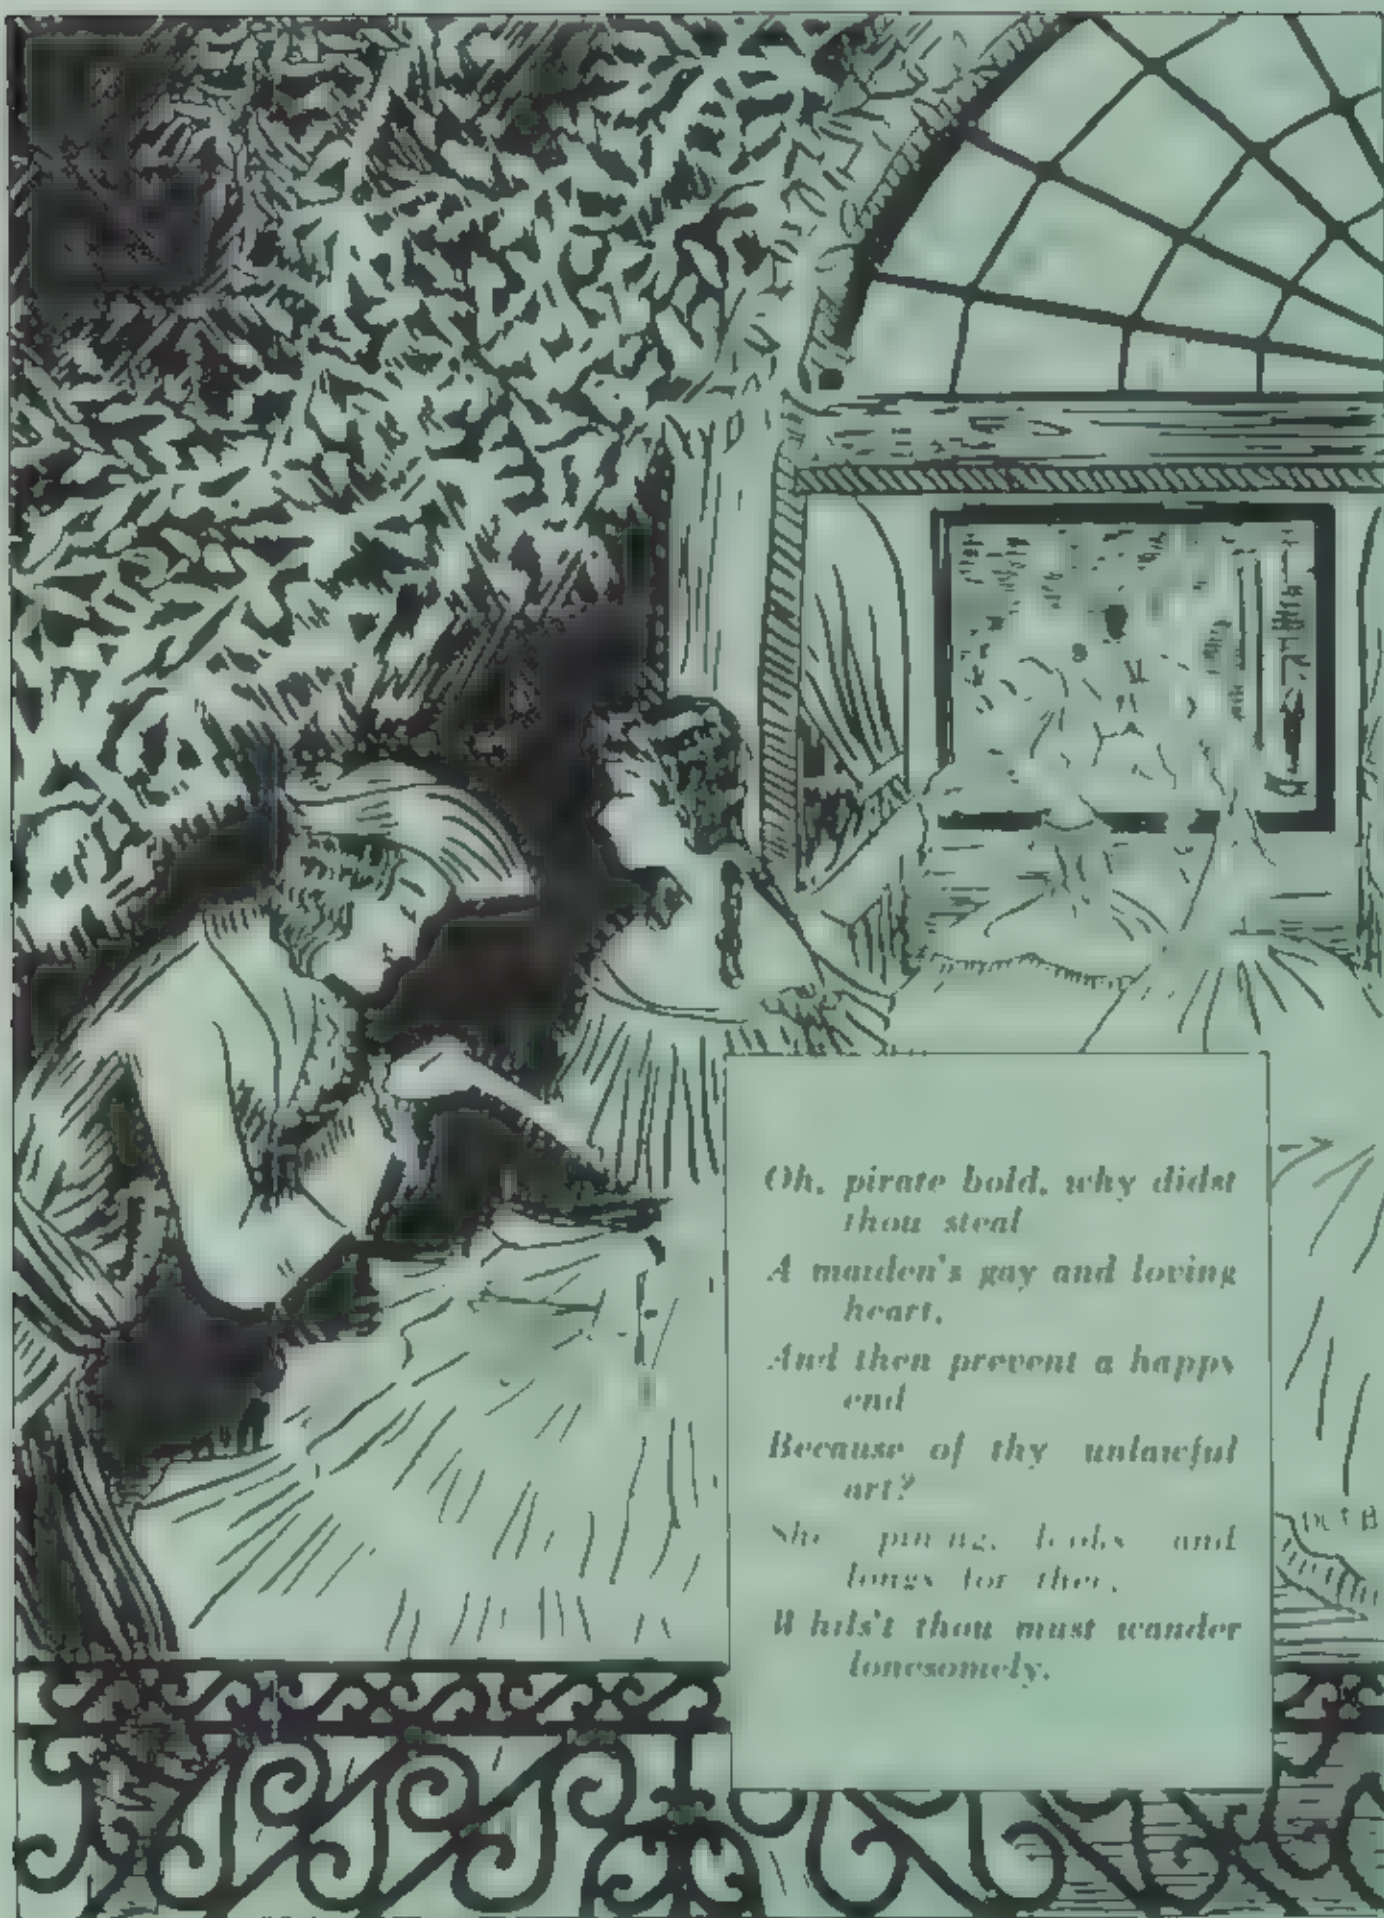 Oh, pirate bold, why didst
thou steal
A maiden's gay and loving
heart,
And then prevent a happy
end
Because of thy unlawful
art?
She pining, looks and
longs for thee,
Whils't thou must wander
lonesomely.